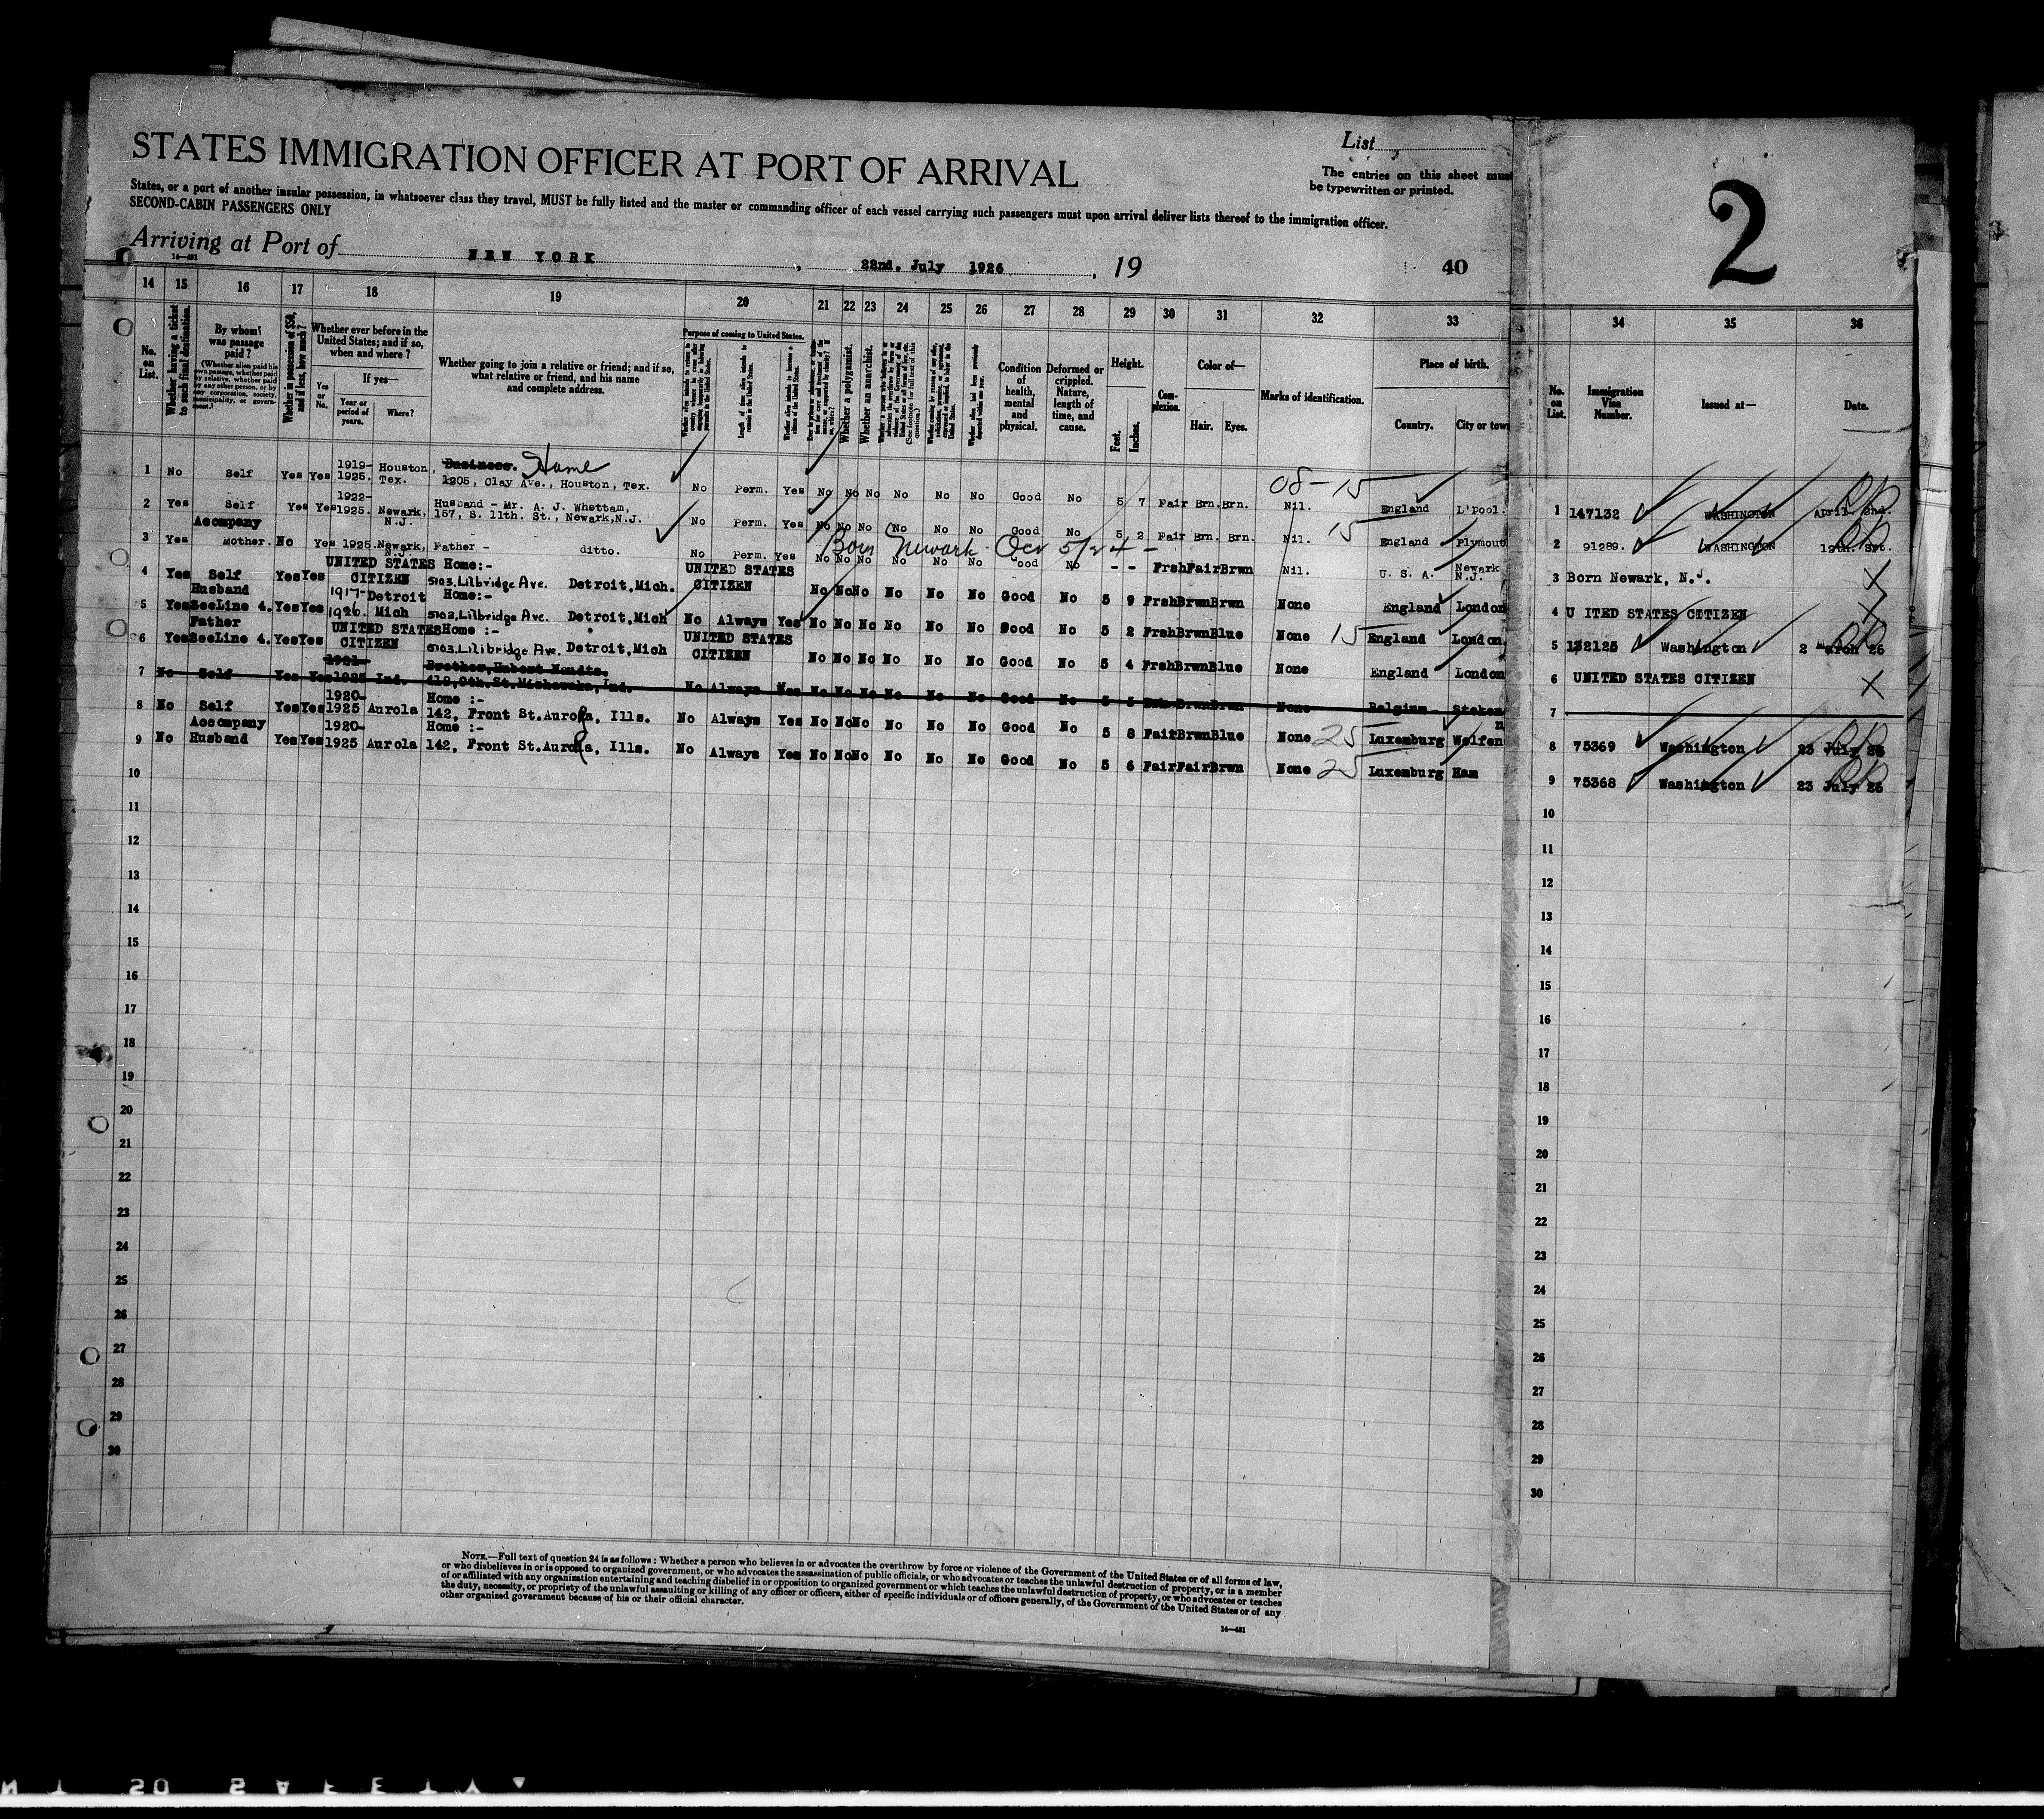 STATES IMMIGRATION OFFICER AT PORT OF ARRIVAL
List
The entries on this sheet must
be typewritten or printed.
2
States, or a port of another insular possession, in whatsoever class they travel, MUST be fully listed and the master or commanding officer of each vessel carrying such passengers must upon arrival deliver lists thereof to the immigration officer.
SECOND-CABIN PASSENGERS ONLY
Arriving at Port of NEW YORK, 22nd. July 1926, 19
40
14—481
14 15 16 17 18 19 20 21 22 23 24 25 26 27 28 29 30 31 32 33 34 35 36
No. on List.
Whether having a ticket to such final destination.
By whom was passage paid?
(Whether alien paid his own passage, whether paid by relative, whether paid by any other person, or by any corporation, society, municipality, or government.)
Whether in possession of $50, and if less, how much?
Whether ever before in the United States; and if so, when and where?
Yes or No.
If yes—
Year or period of years.
Where?
Whether going to join a relative or friend; and if so, what relative or friend, and his name and complete address.
Purpose of coming to United States.
Length of time alien intends to remain in the United States.
Whether alien intends to become a citizen of the United States.
Whether a polygamist.
Whether an anarchist.
Condition of health, mental and physical.
Deformed or crippled. Nature, length of time, and cause.
Height.
Feet.
Inches.
Complexion.
Color of—
Hair.
Eyes.
Marks of identification.
Place of birth.
Country.
City or town
No. on List.
Immigration Visa Number.
Issued at—
Date.
08-15
1 No Self Yes Yes 1919-1925. Houston, Tex. Business. Home 1205, Clay Ave., Houston, Tex. No Perm. Yes No No No No No No Good No 5 7 Fair Brn. Brn. Nil. England L'pool. 1 147132 WASHINGTON April. 2nd.
2 Yes Self Yes Yes 1922-1925. Newark, N.J. Husband - Mr. A. J. Whettam, 157, S. 11th. St., Newark, N.J. No Perm. Yes No No No No No No Good No 5 2 Fair Brn. Brn. Nil. 15 England Plymout 2 91289. WASHINGTON
Born Newark Oct 5/24 -
3 Yes Acompany Mother. No Yes 1925. Newark, N.J. Father - ditto. No Perm. Yes No No No No No No ood No - - Frsh Fair Brwn Nil. U. S. A. Newark N.J. 3 Born Newark, N.J.
4 Yes Self Yes Yes UNITED STATES CITIZEN Home:- 5103, Lilbridge Ave. Detroit, Mich. UNITED STATES CITIZEN No No No No No No Good No 5 9 Frsh Brwn Brwn None England London 4 U ITED STATES CITIZEN
5 Yes Husband See Line 4. Yes Yes 1917-1926. Detroit Mich Home:- 5103, Lilbridge Ave. Detroit, Mich No Always Yes No No No No No No Good No 5 2 Frsh Brwn Blue None 15 England London 5 132125 Washington 2 March 26
6 Yes Father See Line 4. Yes Yes UNITED STATES CITIZEN Home :- 5103, Lilibridge Ave. Detroit, Mich UNITED STATES CITIZEN No No No No No No Good No 5 4 Frsh Brwn Blue None England London 6 UNITED STATES CITIZEN
7 No Self Yes Yes 1921-1925 Ind. Brother, Hubert 418, 9th. St. Mishawaka, Ind. No Always Yes No No No No No No Good No 5 5 Brwn Brwn None Belgium Steken 7
8 No Self Yes Yes 1920-1925 Aurola Home :- 142, Front St. Aurola, Ills. No Always Yes No No No No No No Good No 5 8 Fair Brwn Blue None 25 Luxemburg Wolfen 8 75369 Washington 23 July 25
9 No Accompany Husband Yes Yes 1920-1925 Aurola Home :- 142, Front St. Aurola, Ills. No Always Yes No No No No No No Good No 5 6 Fair Fair Brwn None 25 Luxemburg Ham 9 75368 Washington 23 July 25
10 10
11 11
12 12
13 13
14 14
15 15
16 16
17 17
18 18
19 19
20 20
21 21
22 22
23 23
24 24
25 25
26 26
27 27
28 28
29 29
30 30
NOTE.—Full text of question 24 is as follows: Whether a person who believes in or advocates the overthrow by force or violence of the Government of the United States or of all forms of law,
or who disbelieves in or is opposed to organized government, or who advocates the assassination of public officials, or who advocates or teaches the unlawful destruction of property, or is a member
of or affiliated with any organization entertaining and teaching disbelief in or opposition to organized government or which teaches the unlawful destruction of property, or who advocates or teaches
the duty, necessity, or propriety of the unlawful assaulting or killing of any officer or officers, either of specific individuals or of officers generally, of the Government of the United States or of any
other organized government because of his or their official character.
14—481